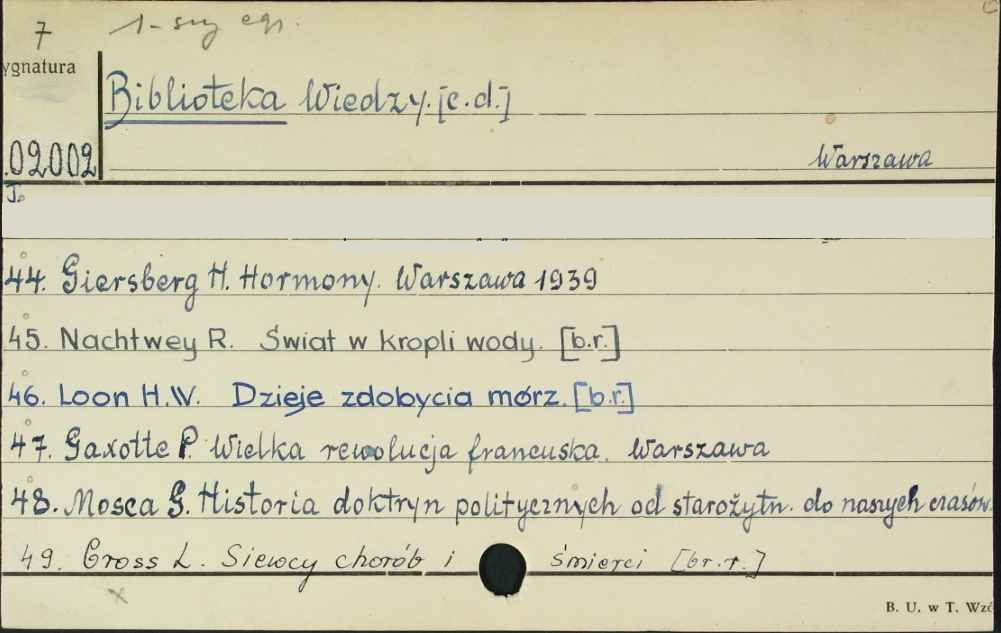 7 1-szy egz.
ygnatura
Biblioteka Wiedzy. [c.d.]
.02002
Warszawa
T.
44. Giersberg H. Hormony. Warszawa 1939
45. Nachtwey R. Świat w kropli wody. [b.r.]
46. Loon H.W. Dzieje zdobycia mórz. [b.r.]
47. Gaxotte P. Wielka rewolucja francuska. Warszawa
48. Mosca G. Historia doktryn politycznych od starożytn. do naszych czasów.
49. Gross L. Siewcy chorób i śmierci [br.r.]
B. U. w T. Wzó